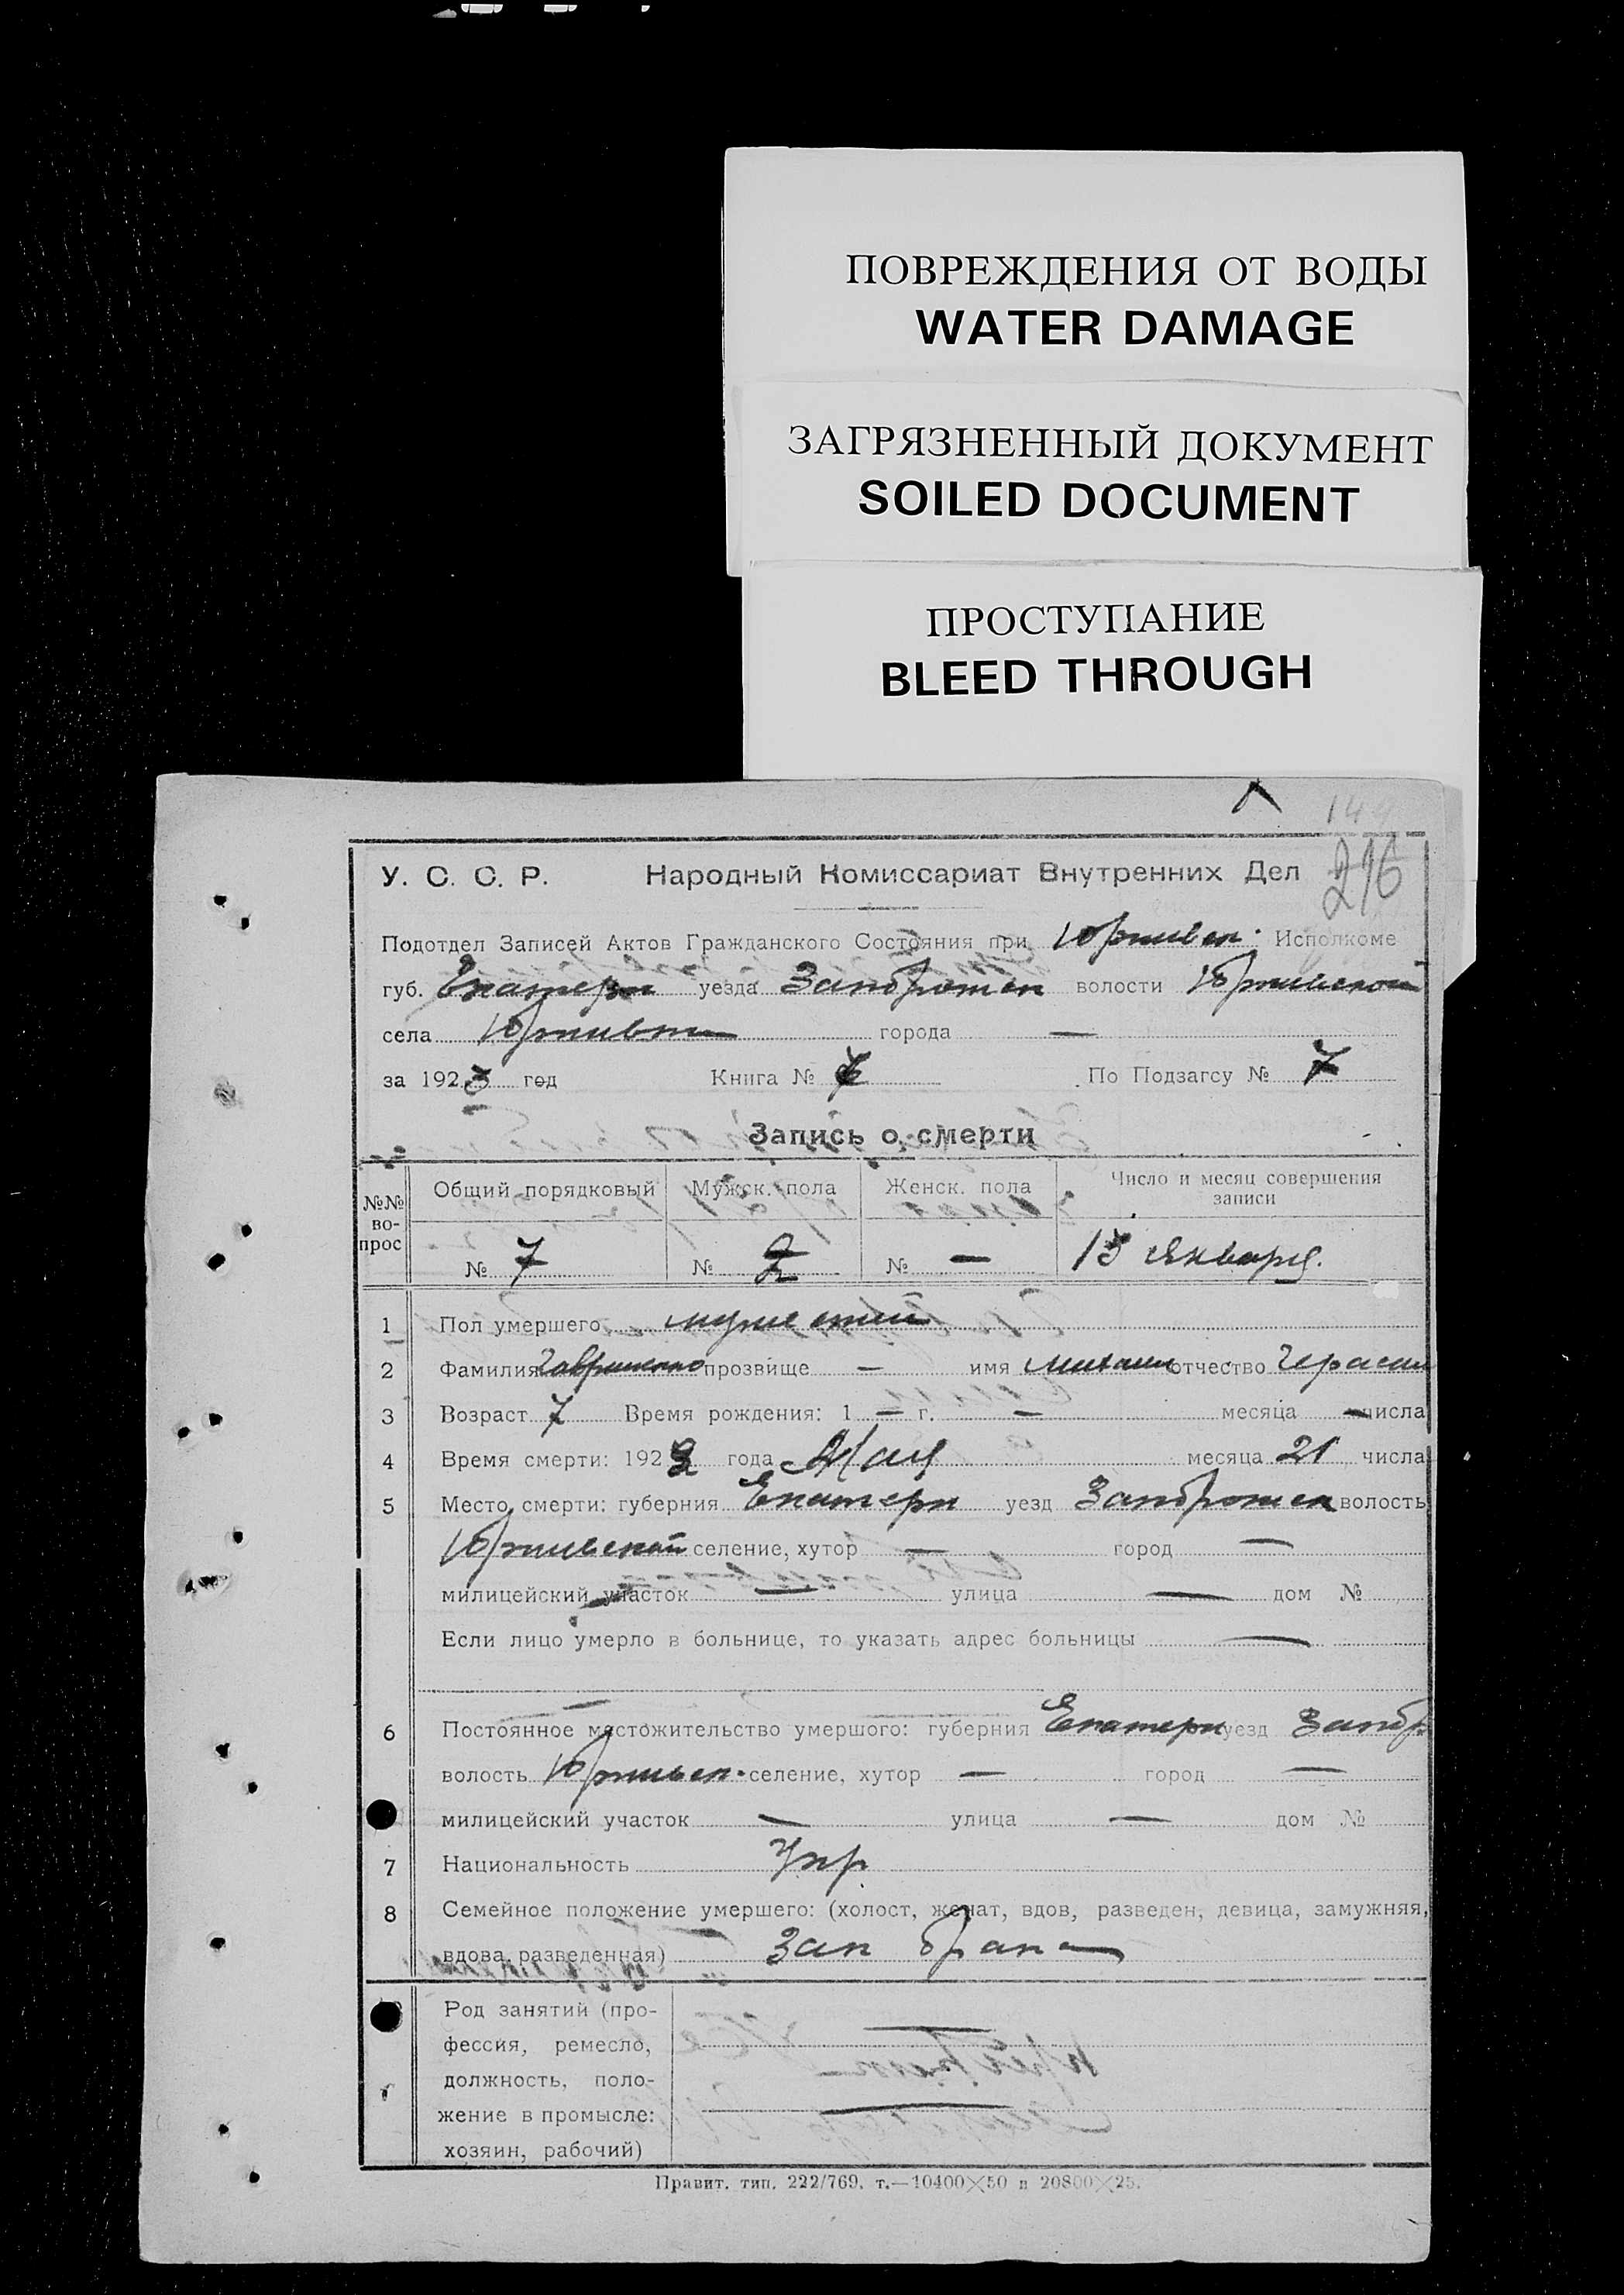 ПОВРЕЖДЕНИЯ ОТ ВОДЫ
WATER DAMAGE
ЗАГРЯЗНЕННЫЙ ДОКУМЕНТ
SOILED DOCUMENT
ПРОСТУПАНИЕ
BLEED THROUGH
144
216
У. С. С. Р. Народный Комиссариат Внутренних Дел
Подотдел Записей Актов Гражданского Состояния при Исполкоме
губ. Екатери уезда волости
села города —
за 1923 год Книга № По Подзагсу № 7
Запись о смерти
№№ во-прос Общий порядковый Мужск. пола Женск. пола Число и месяц совершения записи
№ 7 № 2 № — 15 января.
1 Пол умершего мужеский
2 Фамилия Гавриленко прозвище — имя Михаил отчество Герасим
3 Возраст 7 Время рождения: 1 — г. — месяца — числа
4 Время смерти: 192 года Мая месяца 21 числа
5 Место смерти: губерния Екатери уезд волость
селение, хутор — город —
милицейский участок — улица — дом №
Если лицо умерло в больнице, то указать адрес больницы —
6 Постоянное местожительство умершого: губерния Екатери уезд
волость селение, хутор — город —
милицейский участок — улица — дом №
7 Национальность Укр
8 Семейное положение умершего: (холост, женат, вдов, разведен, девица, замужняя,
вдова, разведенная)
Род занятий (про-
фессия, ремесло,
должность, поло-
жение в промысле:
хозяин, рабочий)
Правит. тип. 222/769. т.—10400×50 п 20800×25.